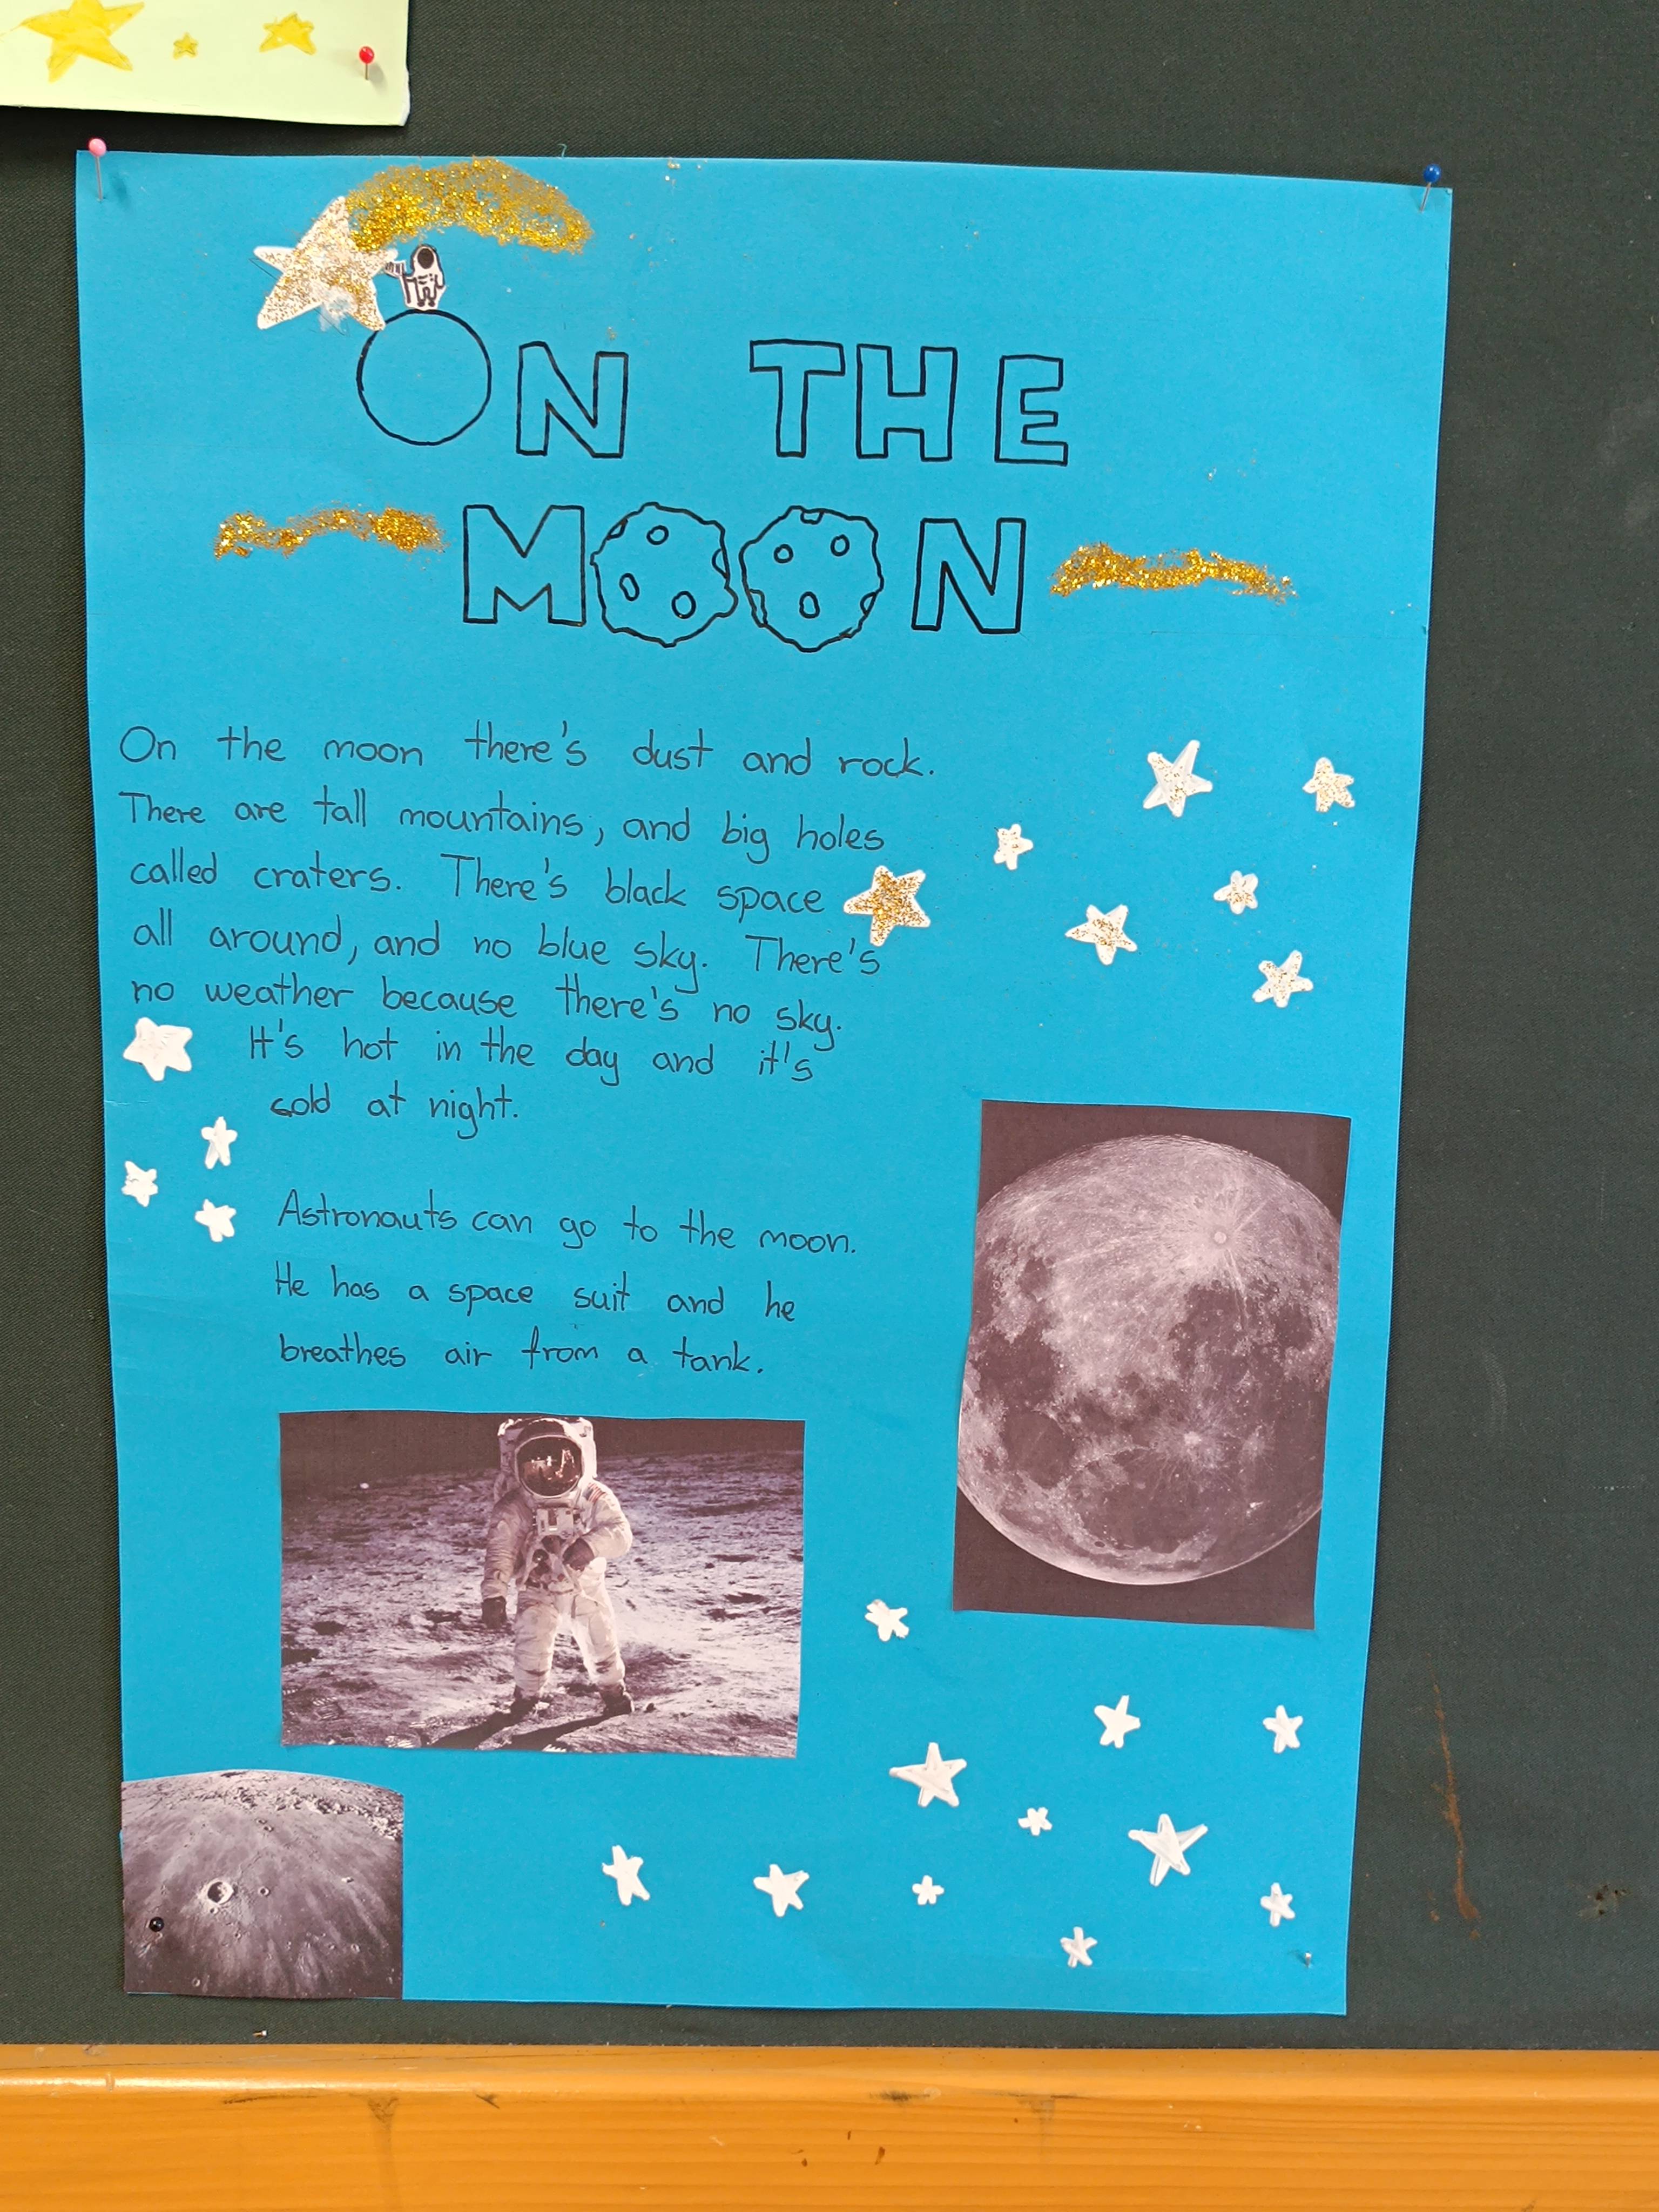 ON THE
MOON
On the moon there's dust and rock.
There are tall mountains, and big holes
called craters. There's black space
all around, and no blue sky. There's
no weather because there's no sky.
It's hot in the day and it's
cold at night.
Astronauts can go to the moon.
He has a space suit and he
breathes air from a tank.